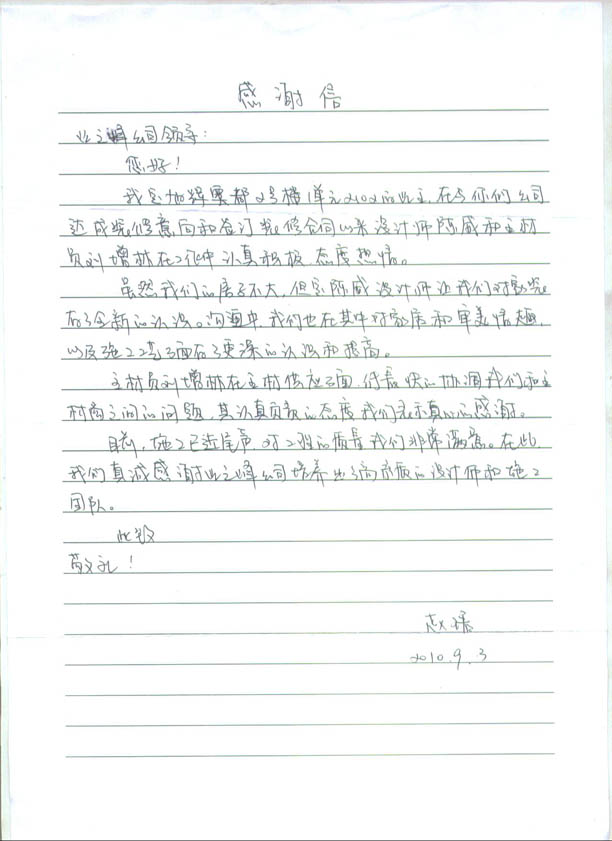 感谢信
业之峰公司领导:
您好!
我是 都2号楼1单元2102的业主,在与你们公司
达成装修意向和签订装修合同以来设计师陈威和主材
员刘增林在工作中认真积极、态度热情。
虽然我们的房子不大,但是陈威设计师让我们对家装
有了全新的认识。沟通中,我们也在其中对家居和审美情趣,
以及施工工艺方面有了更深的认识和提高。
主材员刘增林在主材供应方面, 快的协调我们和主
材商之间的问题,其认真负责的态度我们表示真心的感谢。
目前,施工已近尾声,对工程的质量我们非常满意。在此,
我们真诚感谢业之峰公司培养出了高素质的设计师和施工
团队。
此致
敬礼!
赵
2010.9.3